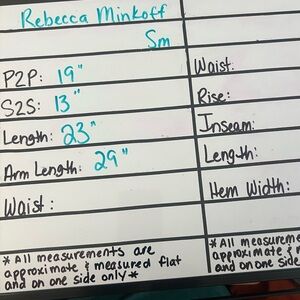 Rebecca Minkoff
Sm
P2P: 19"
S2S: 13"
Length: 23"
Arm Length: 29"
Waist:
*All measurements are
approximate & measured flat
and on one side only*
Waist:
Rise:
Inseam:
Length:
Hem Width:
*All measureme
approximate & m
and on one side